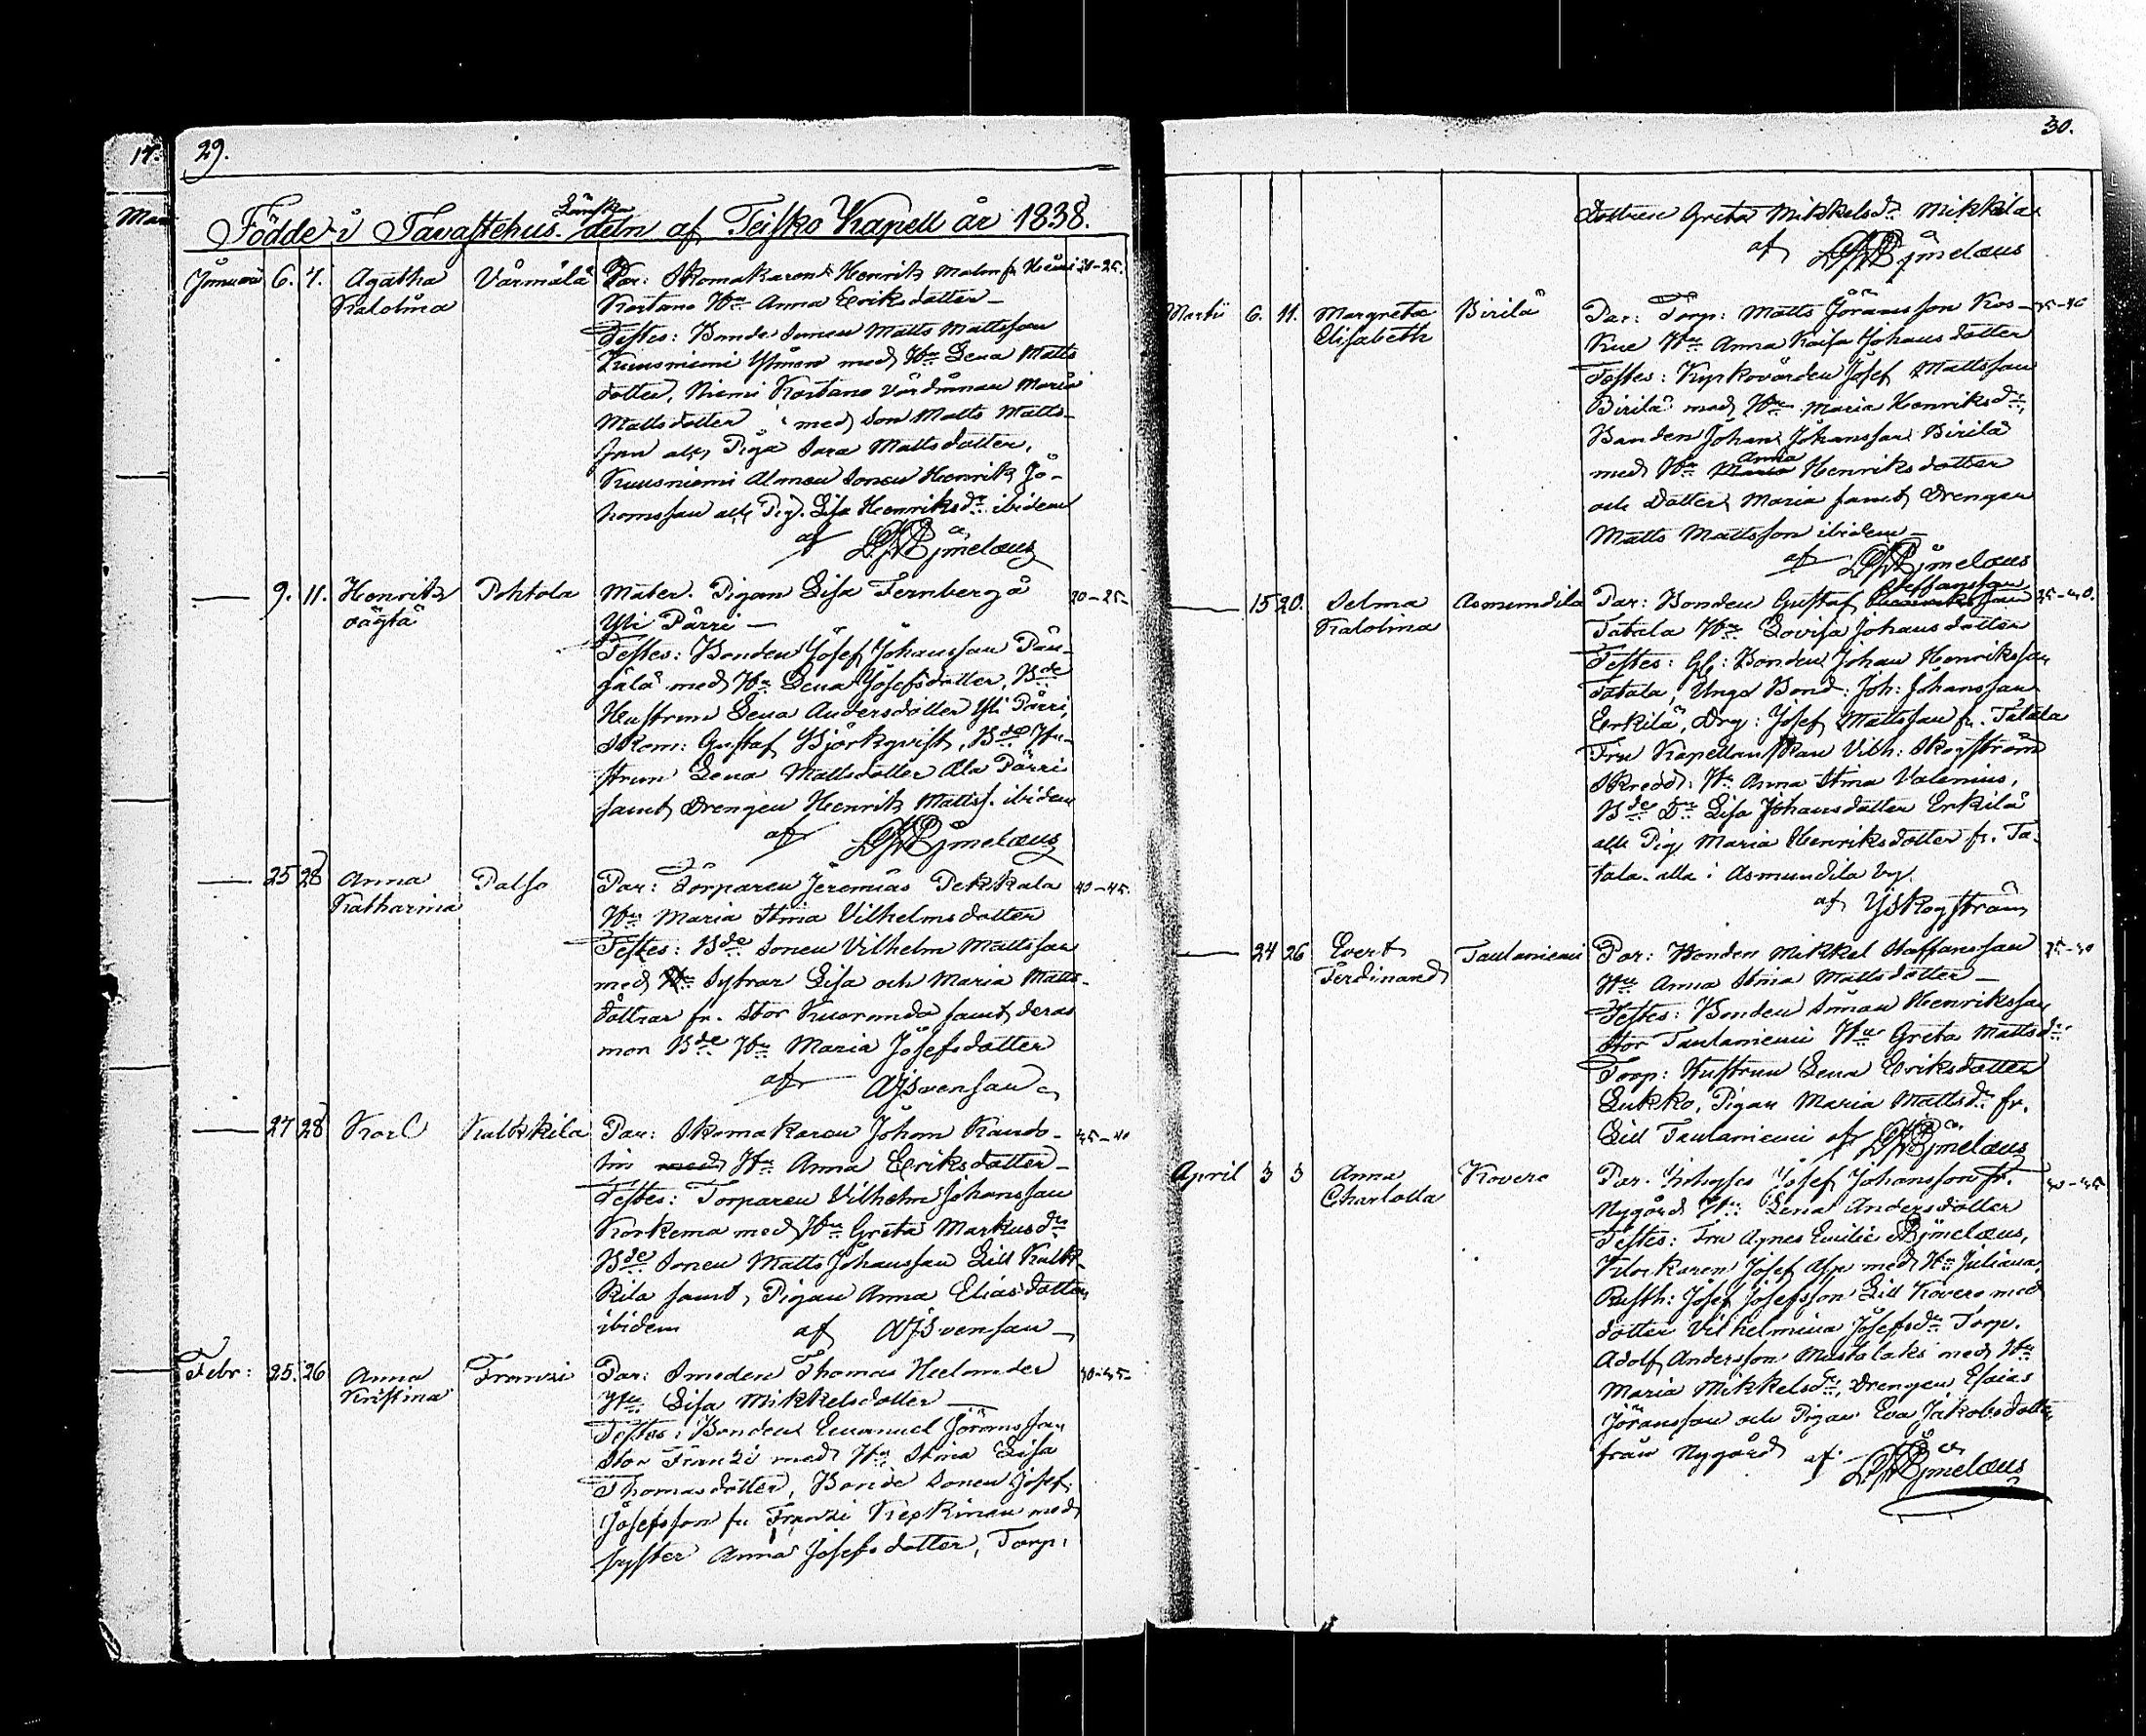 17.
29.
Man
Länska
Födde i Tavastehus deln af Teisko Kapell år 1838.
Januari 6. 7. Agatha Karolina Värmälä Par: Skomakaren Henrik Malm fr Niemi 20-25.
Kortano Hu Anna Eriksdotter
Testes: Bonde Sonen Matts Mattsson
Kuusniemi med Hu Lena Matts
dotter, Niemi Kortano värdinnan Maria
Mattsdotter med Son Matts Matts-
son och Piga Sara Mattsdotter,
Kuusniemi Sonen Henrik Jo-
hansson och Pig. Lisa Henriksdr ibidem
af
9. 11. Henrik oägta Pohtola Mater. Pigan Lisa Fernberg å 20-25
Yli Pärri
Testes: Bonden Josef Johansson
med Hu Lena Josefsdotter, Bde
Hustrun Lena Andersdotter Yli Pärri,
Skom: Gustaf Björkqvist, Bde Hu-
strun Lena Mattsdotter Ala Pärri
samt Drengen Henrik Mattss. ibidem
af
25 28 Anna Katharina Palso Par: Torparen Jeremias Pekkala 40-45.
Hu Maria Stina Vilhelmsdotter
Testes: Bde Sonen Vilhelm Mattsson
med Systrar Lisa och Maria Matts-
döttrar fr. Stor Kuoranda samt deras
mor Bde Hu Maria Josefsdotter
af Svensson
27 28 Karl Kulkkila Par: Skomakaren Johan Rando-
lin med Hu Anna Eriksdotter
Testes: Torparen Vilhelm Johansson
Korkema med Hu Greta Markusdr
Bde Sonen Matts Johansson Lill Kulk-
kila samt Pigan Anna Eliasdotter
ibidem af Svensson
Febr: 25. 26 Anna Kristina Fransi Par: Smeden Thomas Heelander
Hu Lisa Mikkelsdotter
Testes: Bonden Emanuel Göransson
Stor Franzi med Hu Stina Lisa
Thomasdotter, Bonde Sonen Josef
Josefsson fr Franzi med
syster Anna Josefsdotter, Torp:
30.
dottren Greta Mikkelsdr Mikkila
af
Martii 6. 11. Margreta Elisabeth Birilä Par: Torp: Matts Göransson Kos-
kue Hu Anna Kaisa Johansdotter
Testes: Kyrkovärden Josef Mattsson
Birilä med Hu Maria Henriksdr,
Bonden Johan Johansson Birilä
Anna
med Hu Maria Henriksdotter
och dotter Maria samt Drengen
Matts Mattsson ibidem
af
Steffansson
15 20. Selma Karolina Asmundila Par: Bonden Gustaf Henriksson
Tatala Hu Lovisa Johansdotter
Testes: Gl: Bonden Johan Henriksson
Tatala, Unga Bond: Joh: Johansson
Erkilä, Drg: Josef Mattsson fr. Tatala
Fru Kapellanskan Vilh: Skogström
Skredd: Hu Anna Stina Valenius,
Bde Dr Lisa Johansdotter Erkilä
och Pig Maria Henriksdotter fr. Ta-
tala. alla i Asmundila by.
af Skogström
24 26 Evert Ferdinand Taulaniemi Par: Bonden Mikkel Staffansson
Hu Anna Stina Mattsdotter
Testes: Bonden Simon Henriksson
Stor Taulaniemi Hu Greta Mattsdr
Torp: Hustrun Lena Eriksdotter
Lukko, Pigan Maria Mattsdr fr.
Lill Taulaniemi af
April 3 3 Anna Charlotta Kovero Par. Inhyses Josef Johansson fr.
Nygård Hu: Lena Andersdotter
Testes: Fru Agnes Emilie Bjömelæus,
Klockaren Josef Asp med Hu Juliana,
Rusth: Josef Josefsson Lill Kovero med
dotter Vilhelmina Josefsdr Torp.
Adolf Andersson Mustalaks med Hu
Maria Mikkelsdr, Drengen Esaias
Göransson och Pigan Eva Jakobsdotter
från Nygård af